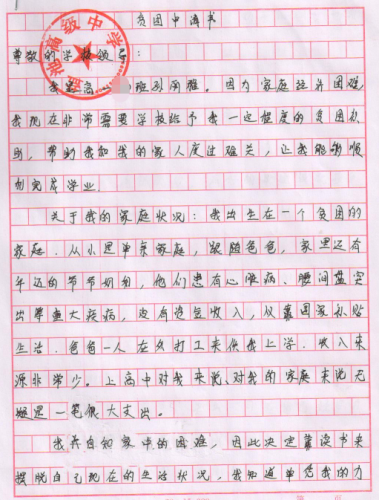 贫困申请书
尊敬的学校领导:
我是高 班刘雨雅。因为家庭经济困难
我现在非常需要学校给予我一定程度的贫困补
助,帮助我和我的家人度过难关,让我能够顺
利完成学业.
关于我的家庭状况:我出生在一个贫困的
家庭.从小是单亲家庭,跟随爸爸,家里还有
年迈的爷爷奶奶,他们患有心脏病、腰间盘突
出等重大疾病,没有稳定收入,仅靠国家补贴
生活.爸爸一人在外打工来供我上学.收入来
源非常少。上高中对我来说、对我的家庭来说无
疑是一笔很大支出。
我知家中的困难,因此决定靠读书来
摆脱自己现在的生活状况,我知道单凭我的力
高级中学